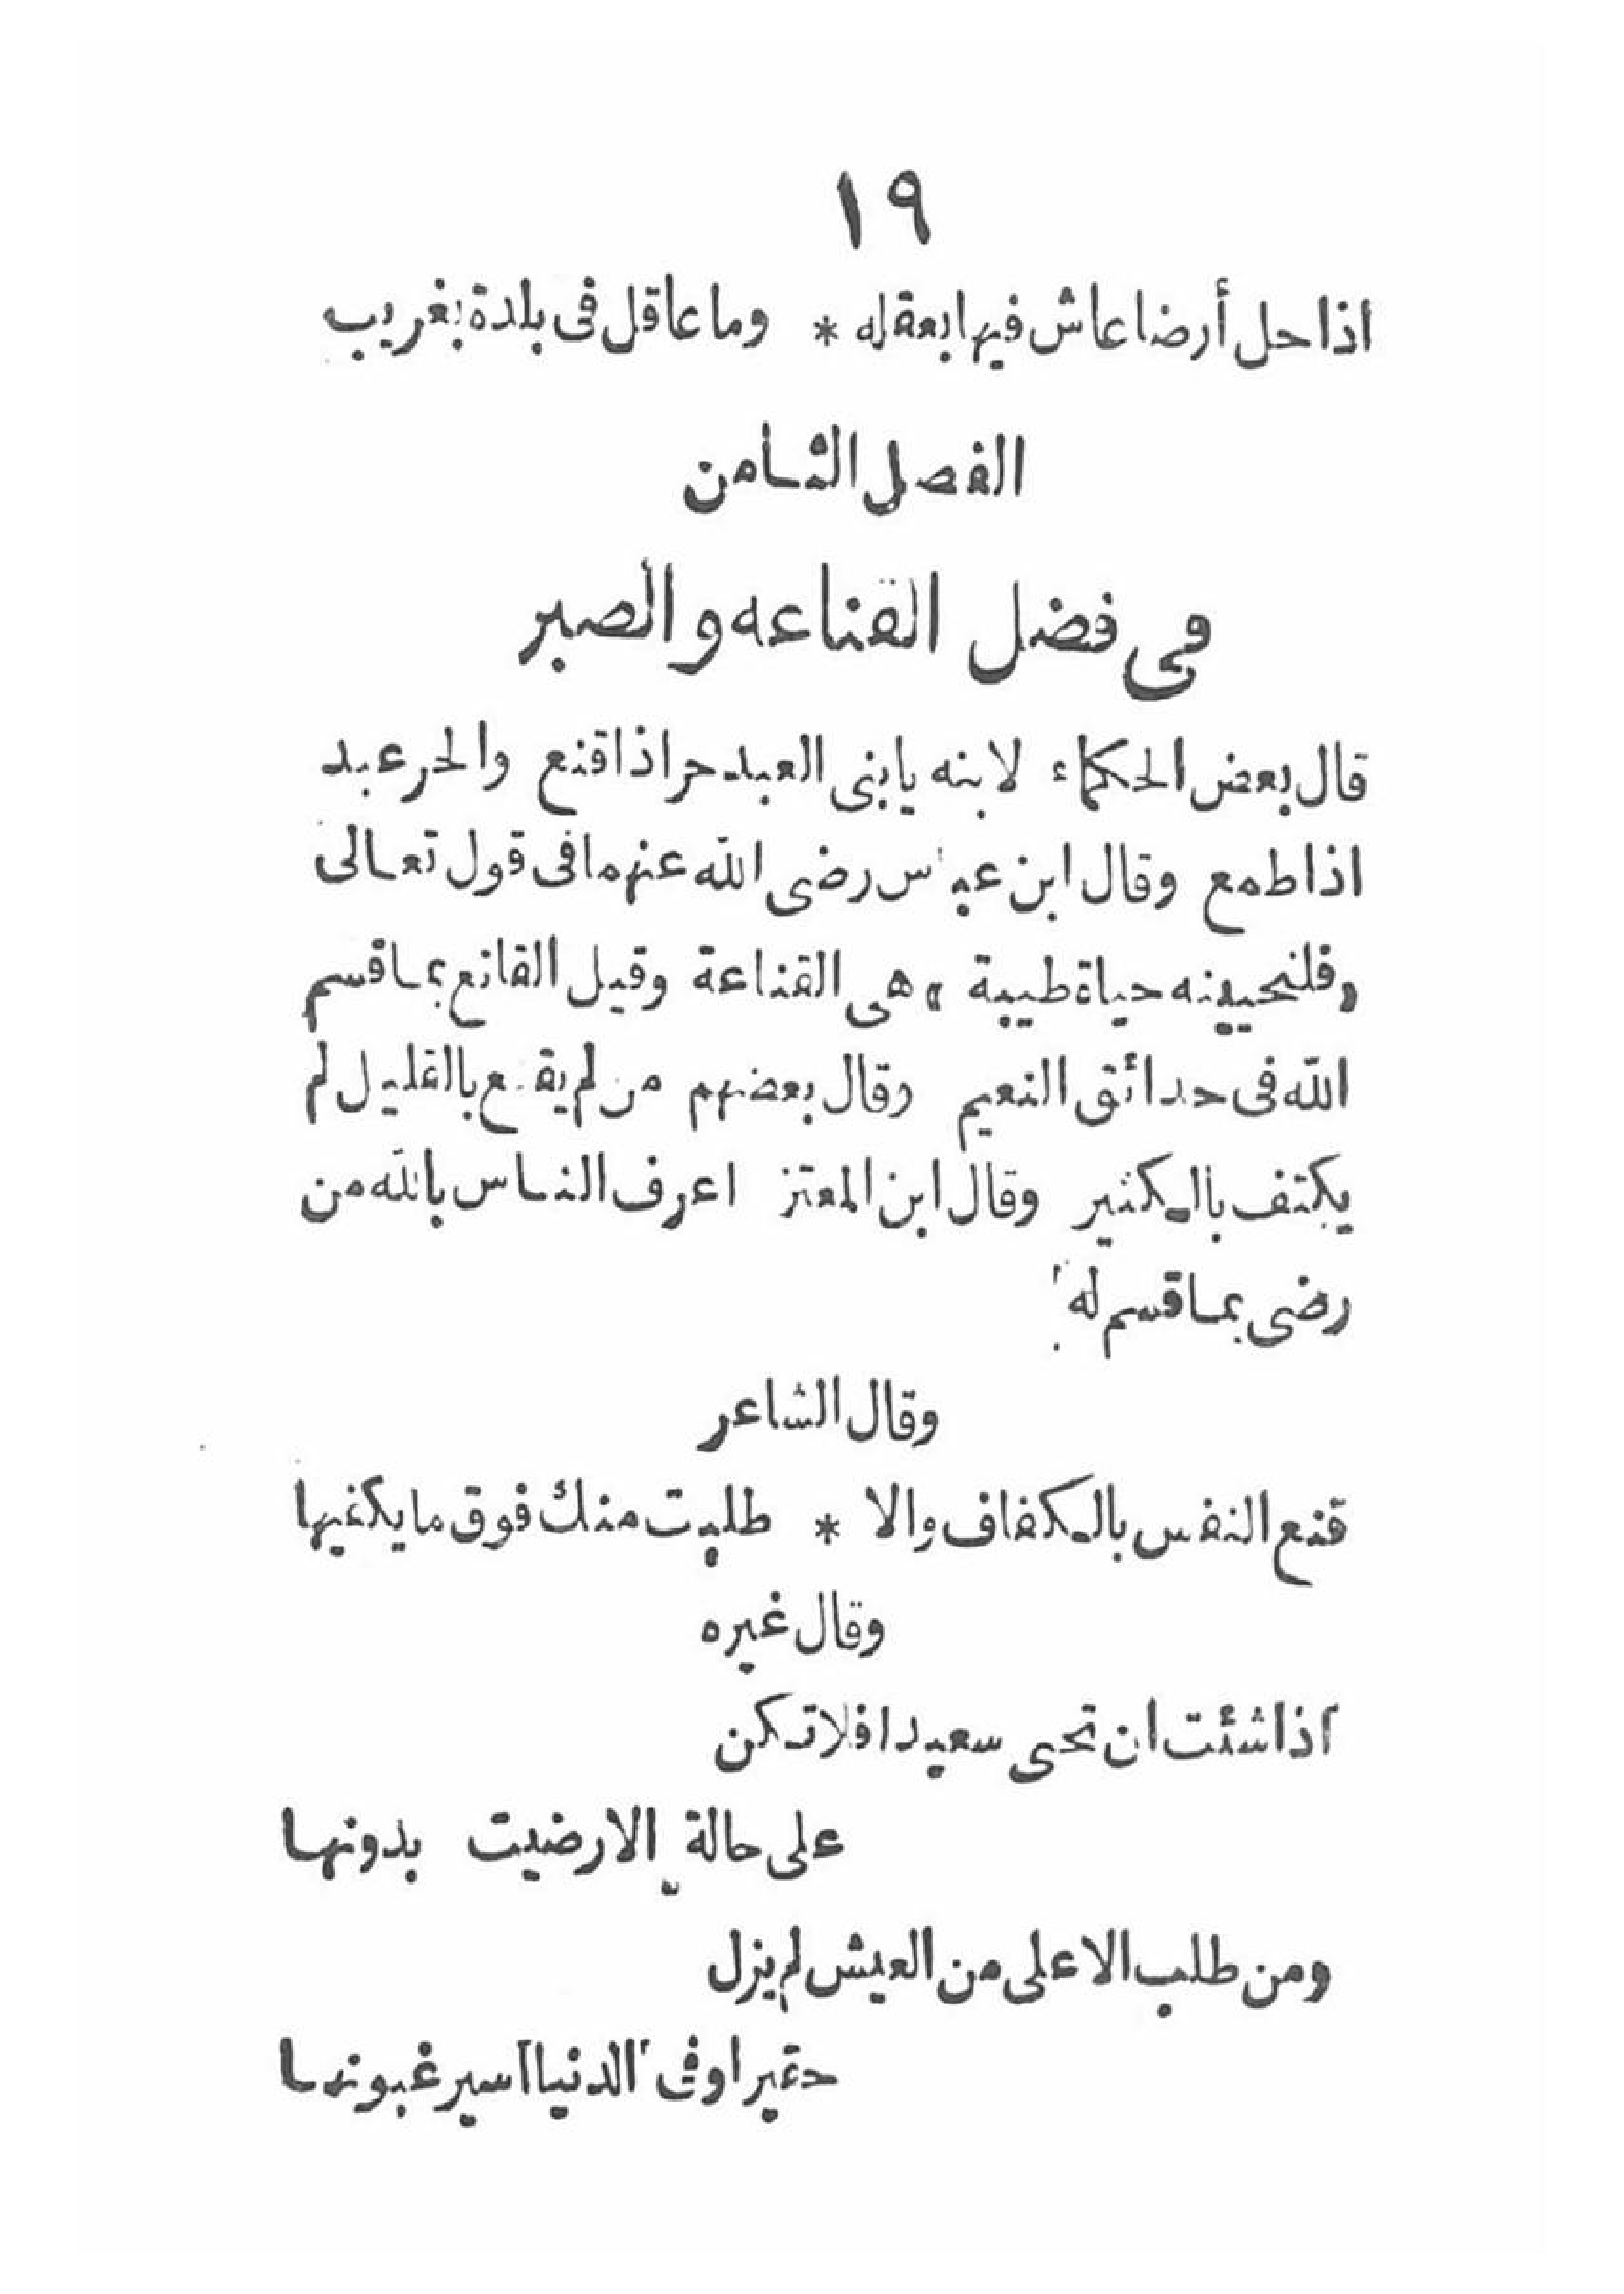 ١٩
اذا حل أرضا عاش فيها بعقله * وما عاقل فى بلدة بغريب
الفصل الثامن
فى فضل القناعه والصبر
قال بعض الحكماء لابنه يابنى العبد حر اذا قنع والحر عبد
اذا طمع وقال ابن عباس رضى الله عنهما فى قول تعالى
«فلنحيينه حياة طيبة» هى القناعة وقيل القانع بما قسم
الله فى حدائق النعيم وقال بعضهم من لم يقنع بالقليل لم
يكتف بالكثير وقال ابن المعتز اعرف الناس بالله من
رضى بما قسم له
وقال الشاعر
قنع النفس بالكفاف والا * طلبت منك فوق ما يكفيها
وقال غيره
اذا شئت ان تحى سعيدا فلا تكن
على حالة الا رضيت بدونها
ومن طلب الاعلى من العيش لم يزل
حقيرا وفى الدنيا اسير غبونها